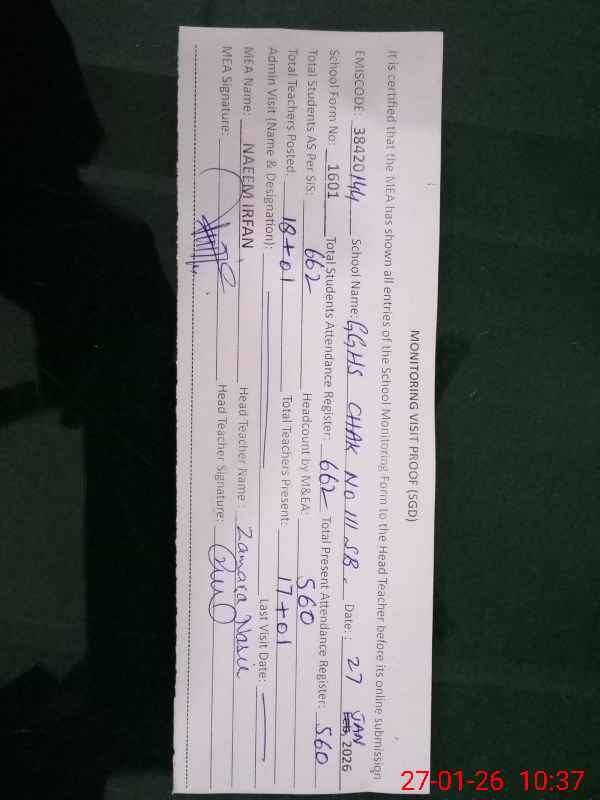 MONITORING VISIT PROOF (SGD)
It is certified that the MEA has shown all entries of the School Monitoring Form to the Head Teacher before its online submission
EMISCODE: 38420144 School Name: GGHS CHAK NO 111 SB. Date: : 27 JAN Feb, 2026
School Form No: 1601 Total Students Attendance Register: 662 Total Present Attendance Register: 560
Total Students AS Per SIS: 662 Headcount by M&EA: 560
Total Teachers Posted: 18+01 Total Teachers Present: 17+01
Admin Visit (Name & Designation): Last Visit Date:
MEA Name: NAEEM IRFAN Head Teacher Name : Zamara Nasir
MEA Signature: Head Teacher Signature:
27-01-26 10:37